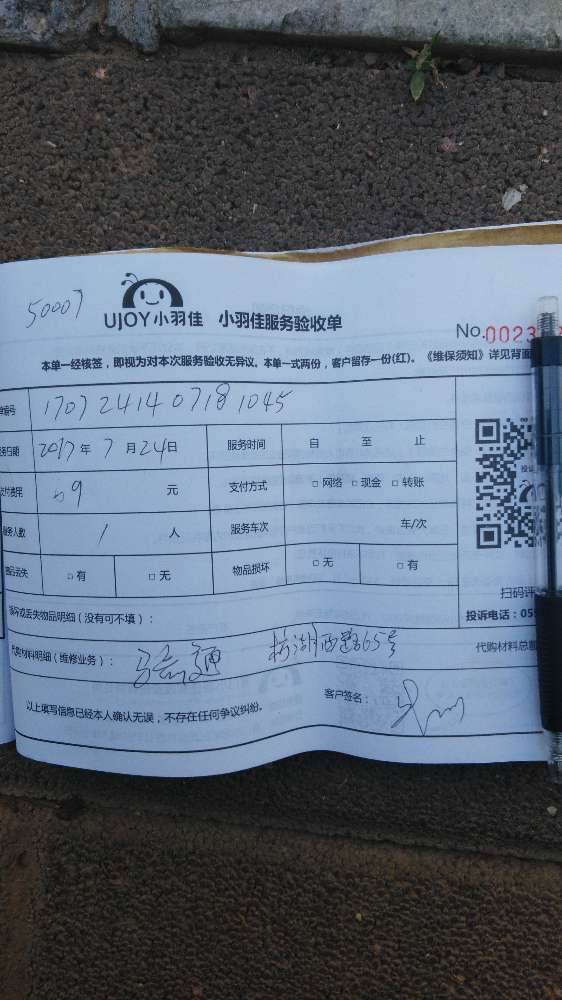 50007
UJOY小羽佳 小羽佳服务验收单
No.0023
本单一经核签,即视为对本次服务验收无异议。本单一式两份,客户留存一份(红)。《维保须知》详见背面
编号 17072414071 81045
务日期 2017年7月24日 服务时间 自 至 止
支付费用 69 元 支付方式 □网络 □现金 □转账
服务人数 1 人 服务车次 车/次
物品丢失 □有 □无 物品损坏 □无 □有
损坏或丢失物品明细(没有可不填):
扫码评
投诉电话:059
代购材料明细(维修业务): 马桶疏通 湖西路65号 代购材料总额
以上填写信息已经本人确认无误,不存在任何争议纠纷。 客户签名: